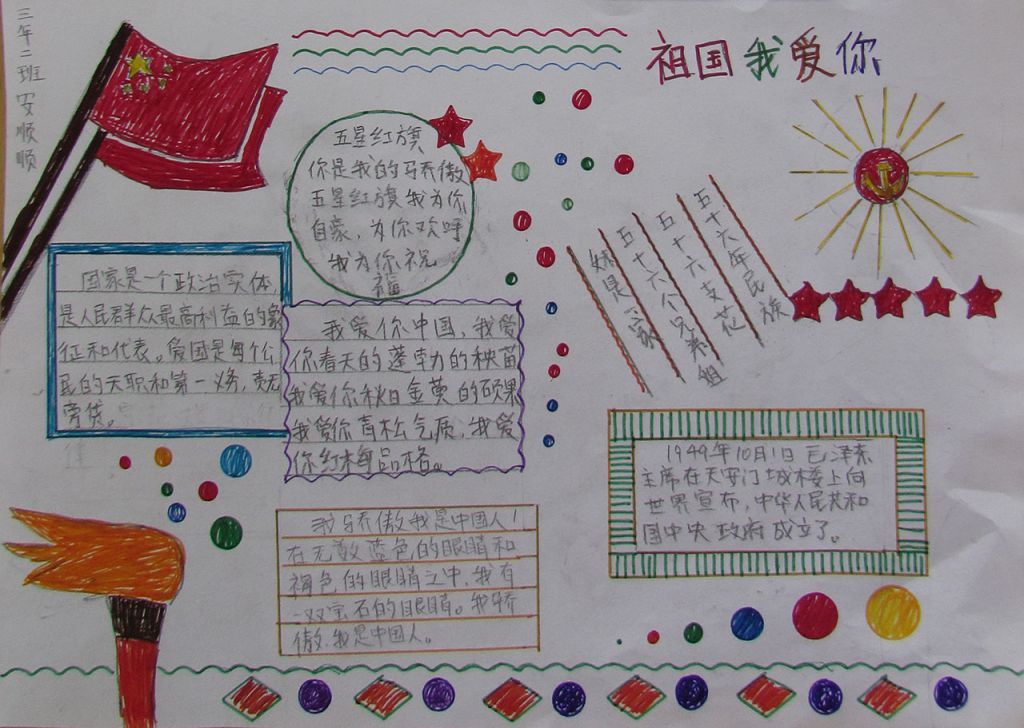 三年二班 安顺顺
祖国我爱你
五星红旗
你是我的骄傲
五星红旗 我为你
自豪，为你欢呼
我为你祝
福
五十六年民族
五十六支花
五十六个兄弟姐
妹是一家
国家是一个政治实体，
是人民群众最高利益的象
征和代表。爱国是每个公
民的天职和第一义务，责无
旁贷。
我爱你中国，我爱
你春天的蓬勃的秧苗
我爱你秋日金黄的硕果
我爱你青松气质，我爱
你红梅品格。
1949年10月1日 毛泽东
主席在天安门城楼上向
世界宣布，中华人民共和
国中央政府成立了。
我骄傲我是中国人！
在无数蓝色的眼睛和
褐色的眼睛之中，我有
一双宝石的眼睛。我骄
傲，我是中国人。